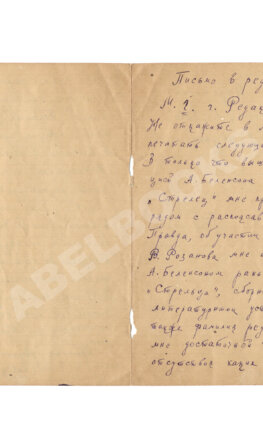 Письмо в ред
М. г. г. Редак
Не откажите в л
печатать следующ
В только что выш
цией А. Беленсона
„Стрелец" мне пр
рядом с
Правда, об участии
В. Розанова мне
А. Беленсоном ран
„Стрельца", сборн
литературном уст
также фамилия ред
мне достаточной
отсутствия каких
ABELBOO